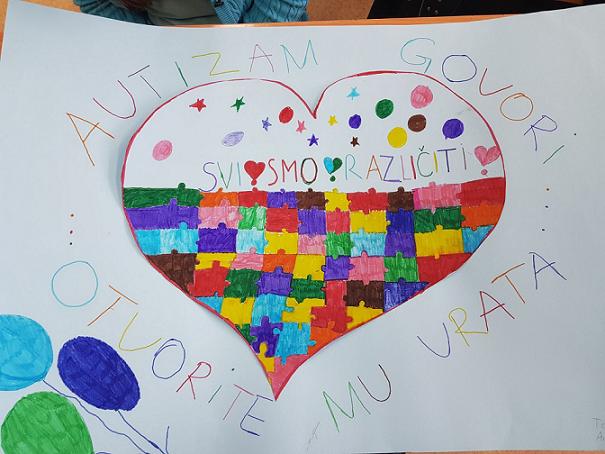 AUTIZAM GOVORI...
SVI SMO RAZLIČITI
...OTVORITE MU VRATA